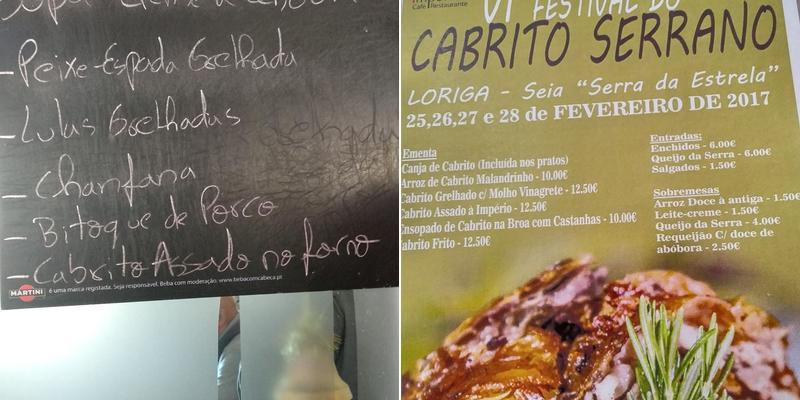 - Peixe-Espada Grelhada
- Lulas Grelhadas
- Chanfana
- Bitoque de Porco
- Cabrito Assado no forno
MARTINI é uma marca registada. Seja responsável. Beba com moderação. www.bebacomcabeca.pt
Café Restaurante
VI FESTIVAL DO
CABRITO SERRANO
LORIGA - Seia "Serra da Estrela"
25,26,27 e 28 de FEVEREIRO DE 2017
Ementa
Canja de Cabrito (Incluída nos pratos)
Arroz de Cabrito Malandrinho - 10.00€
Cabrito Grelhado c/ Molho Vinagrete - 12.50€
Cabrito Assado à Império - 12.50€
Ensopado de Cabrito na Broa com Castanhas - 10.00€
Cabrito Frito - 12.50€
Entradas:
Enchidos - 6.00€
Queijo da Serra - 6.00€
Salgados - 1.50€
Sobremesas
Arroz Doce à antiga - 1.50€
Leite-creme - 1.50€
Queijo da Serra - 4.00€
Requeijão C/ doce de
abóbora - 2.50€